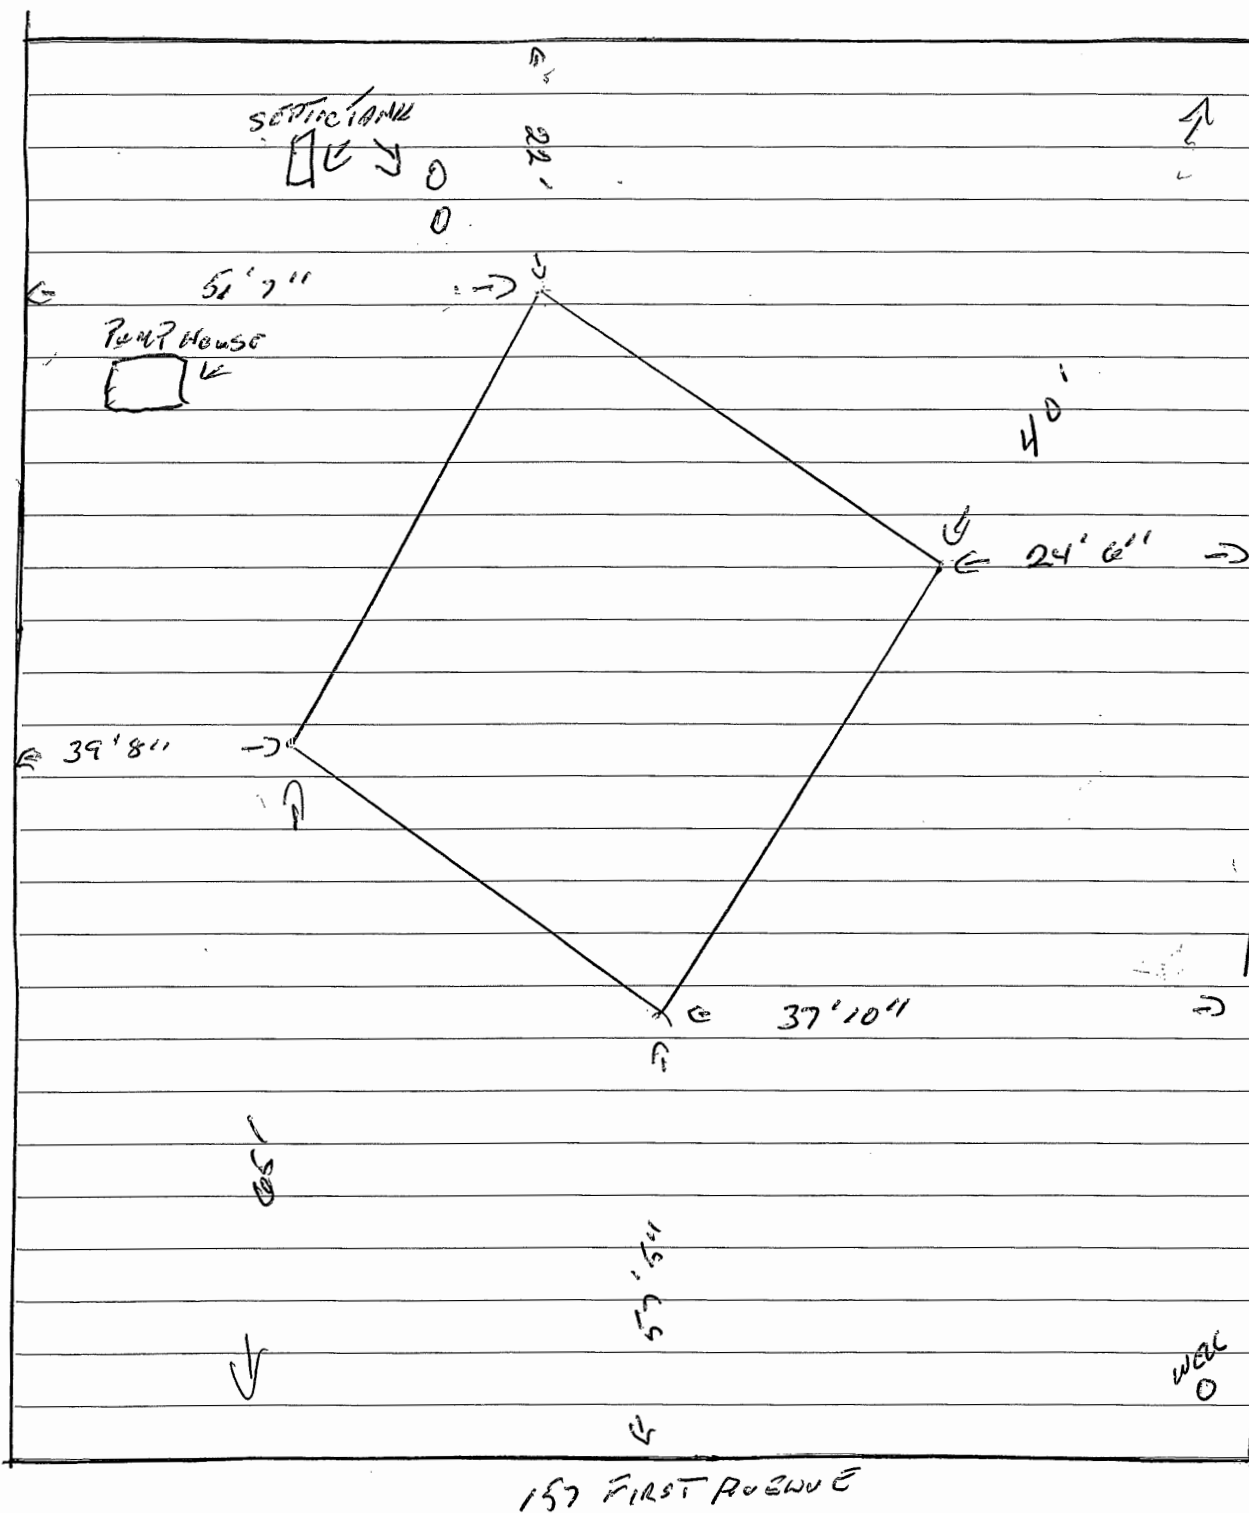 SEPTIC TANK
22'
51'7"
PUMP HOUSE
40'
24'6"
39'8"
37'10"
65'
57'5"
WELL
157 FIRST AVENUE